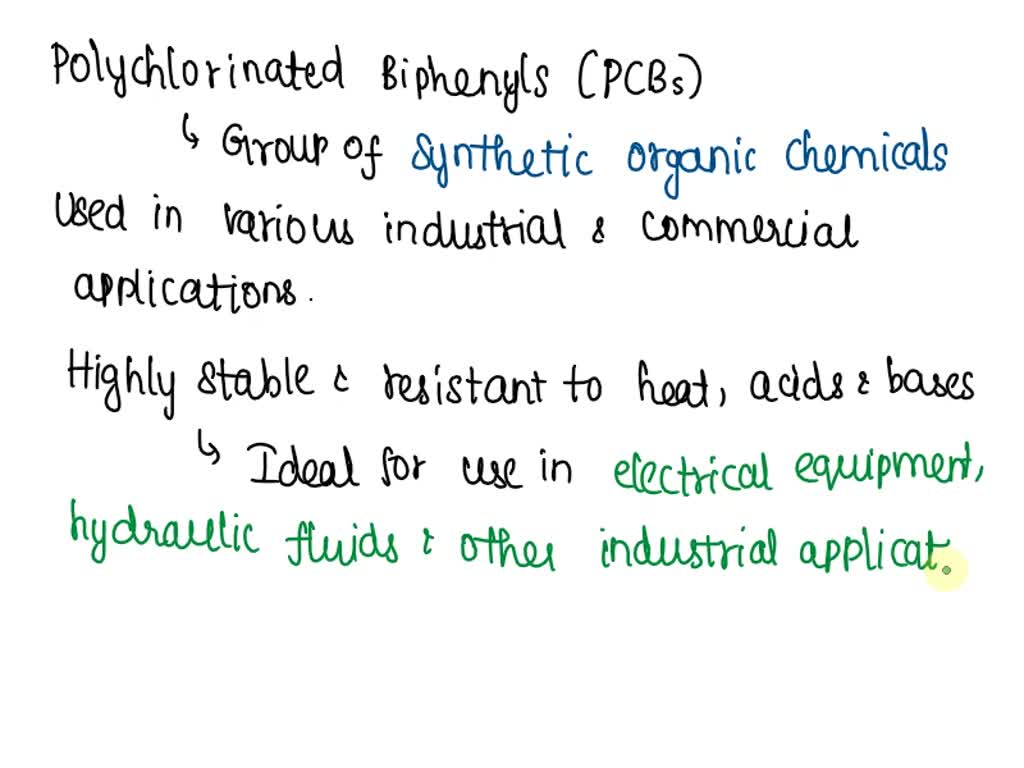 Polychlorinated Biphenyls (PCBs)
↳ Group of synthetic organic chemicals
Used in various industrial & commercial
applications.
Highly stable & resistant to heat, acids & bases
↳ Ideal for use in electrical equipment,
hydraulic fluids & other industrial applicat.